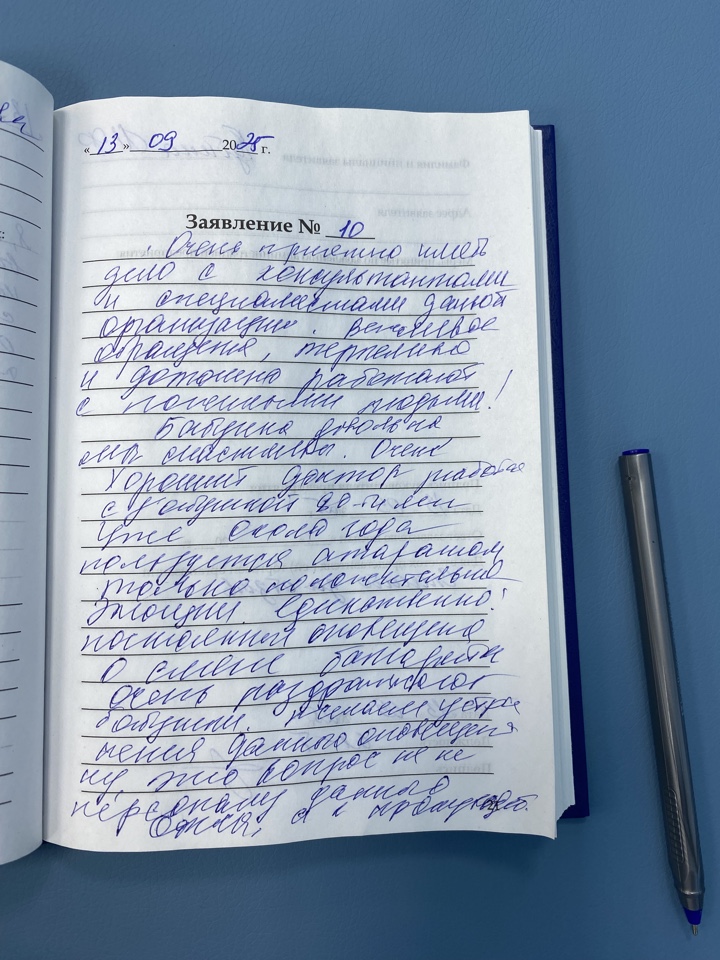 «13» 09 2025 г.
Заявление № 10
Очень приятно иметь
дело с консультантами
и специалистами данной
организации. Вежливое
обращение, терпеливо
и работают
с пожилыми людьми!
Бабушка довольна
мы счастливы. Очень
Хороший доктор работает
с бабушкой 90-ти лет
Уже около года
пользуется аппаратом
только положительные
эмоции. Единственно!
постоянная оповещения
о смене батарейки
очень раздражают
бабушку. Желаем устра
нения данного оповещения
ну, это вопрос не не
персоналу данного
а к